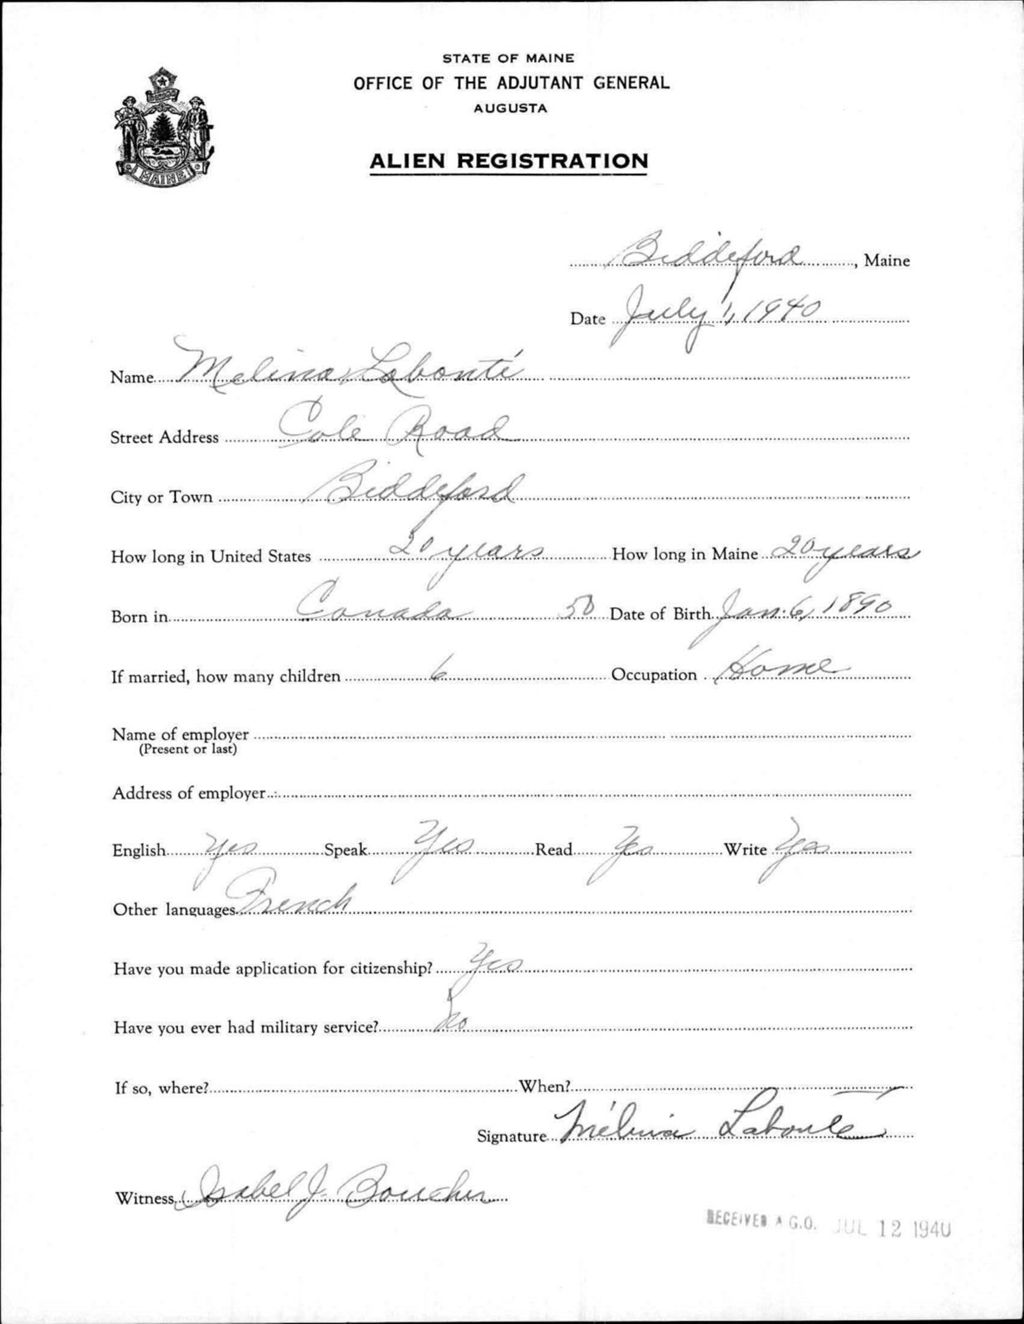 STATE OF MAINE
OFFICE OF THE ADJUTANT GENERAL
AUGUSTA
ALIEN REGISTRATION
MAINE
Biddeford, Maine
Date July 1, 1940
Name Melina Labonté
Street Address Cole Road
City or Town Biddeford
How long in United States 20 years How long in Maine 20 years
Born in Canada 50 Date of Birth Jan. 6, 1890
If married, how many children 6 Occupation Home
Name of employer
(Present or last)
Address of employer
English Yes Speak Yes Read Yes Write Yes
Other languages French
Have you made application for citizenship? Yes
Have you ever had military service? No
If so, where? When?
Signature Mélina Labonté
Witness Isabel J. Boucher
RECEIVED A.G.O. JUL 12 1940